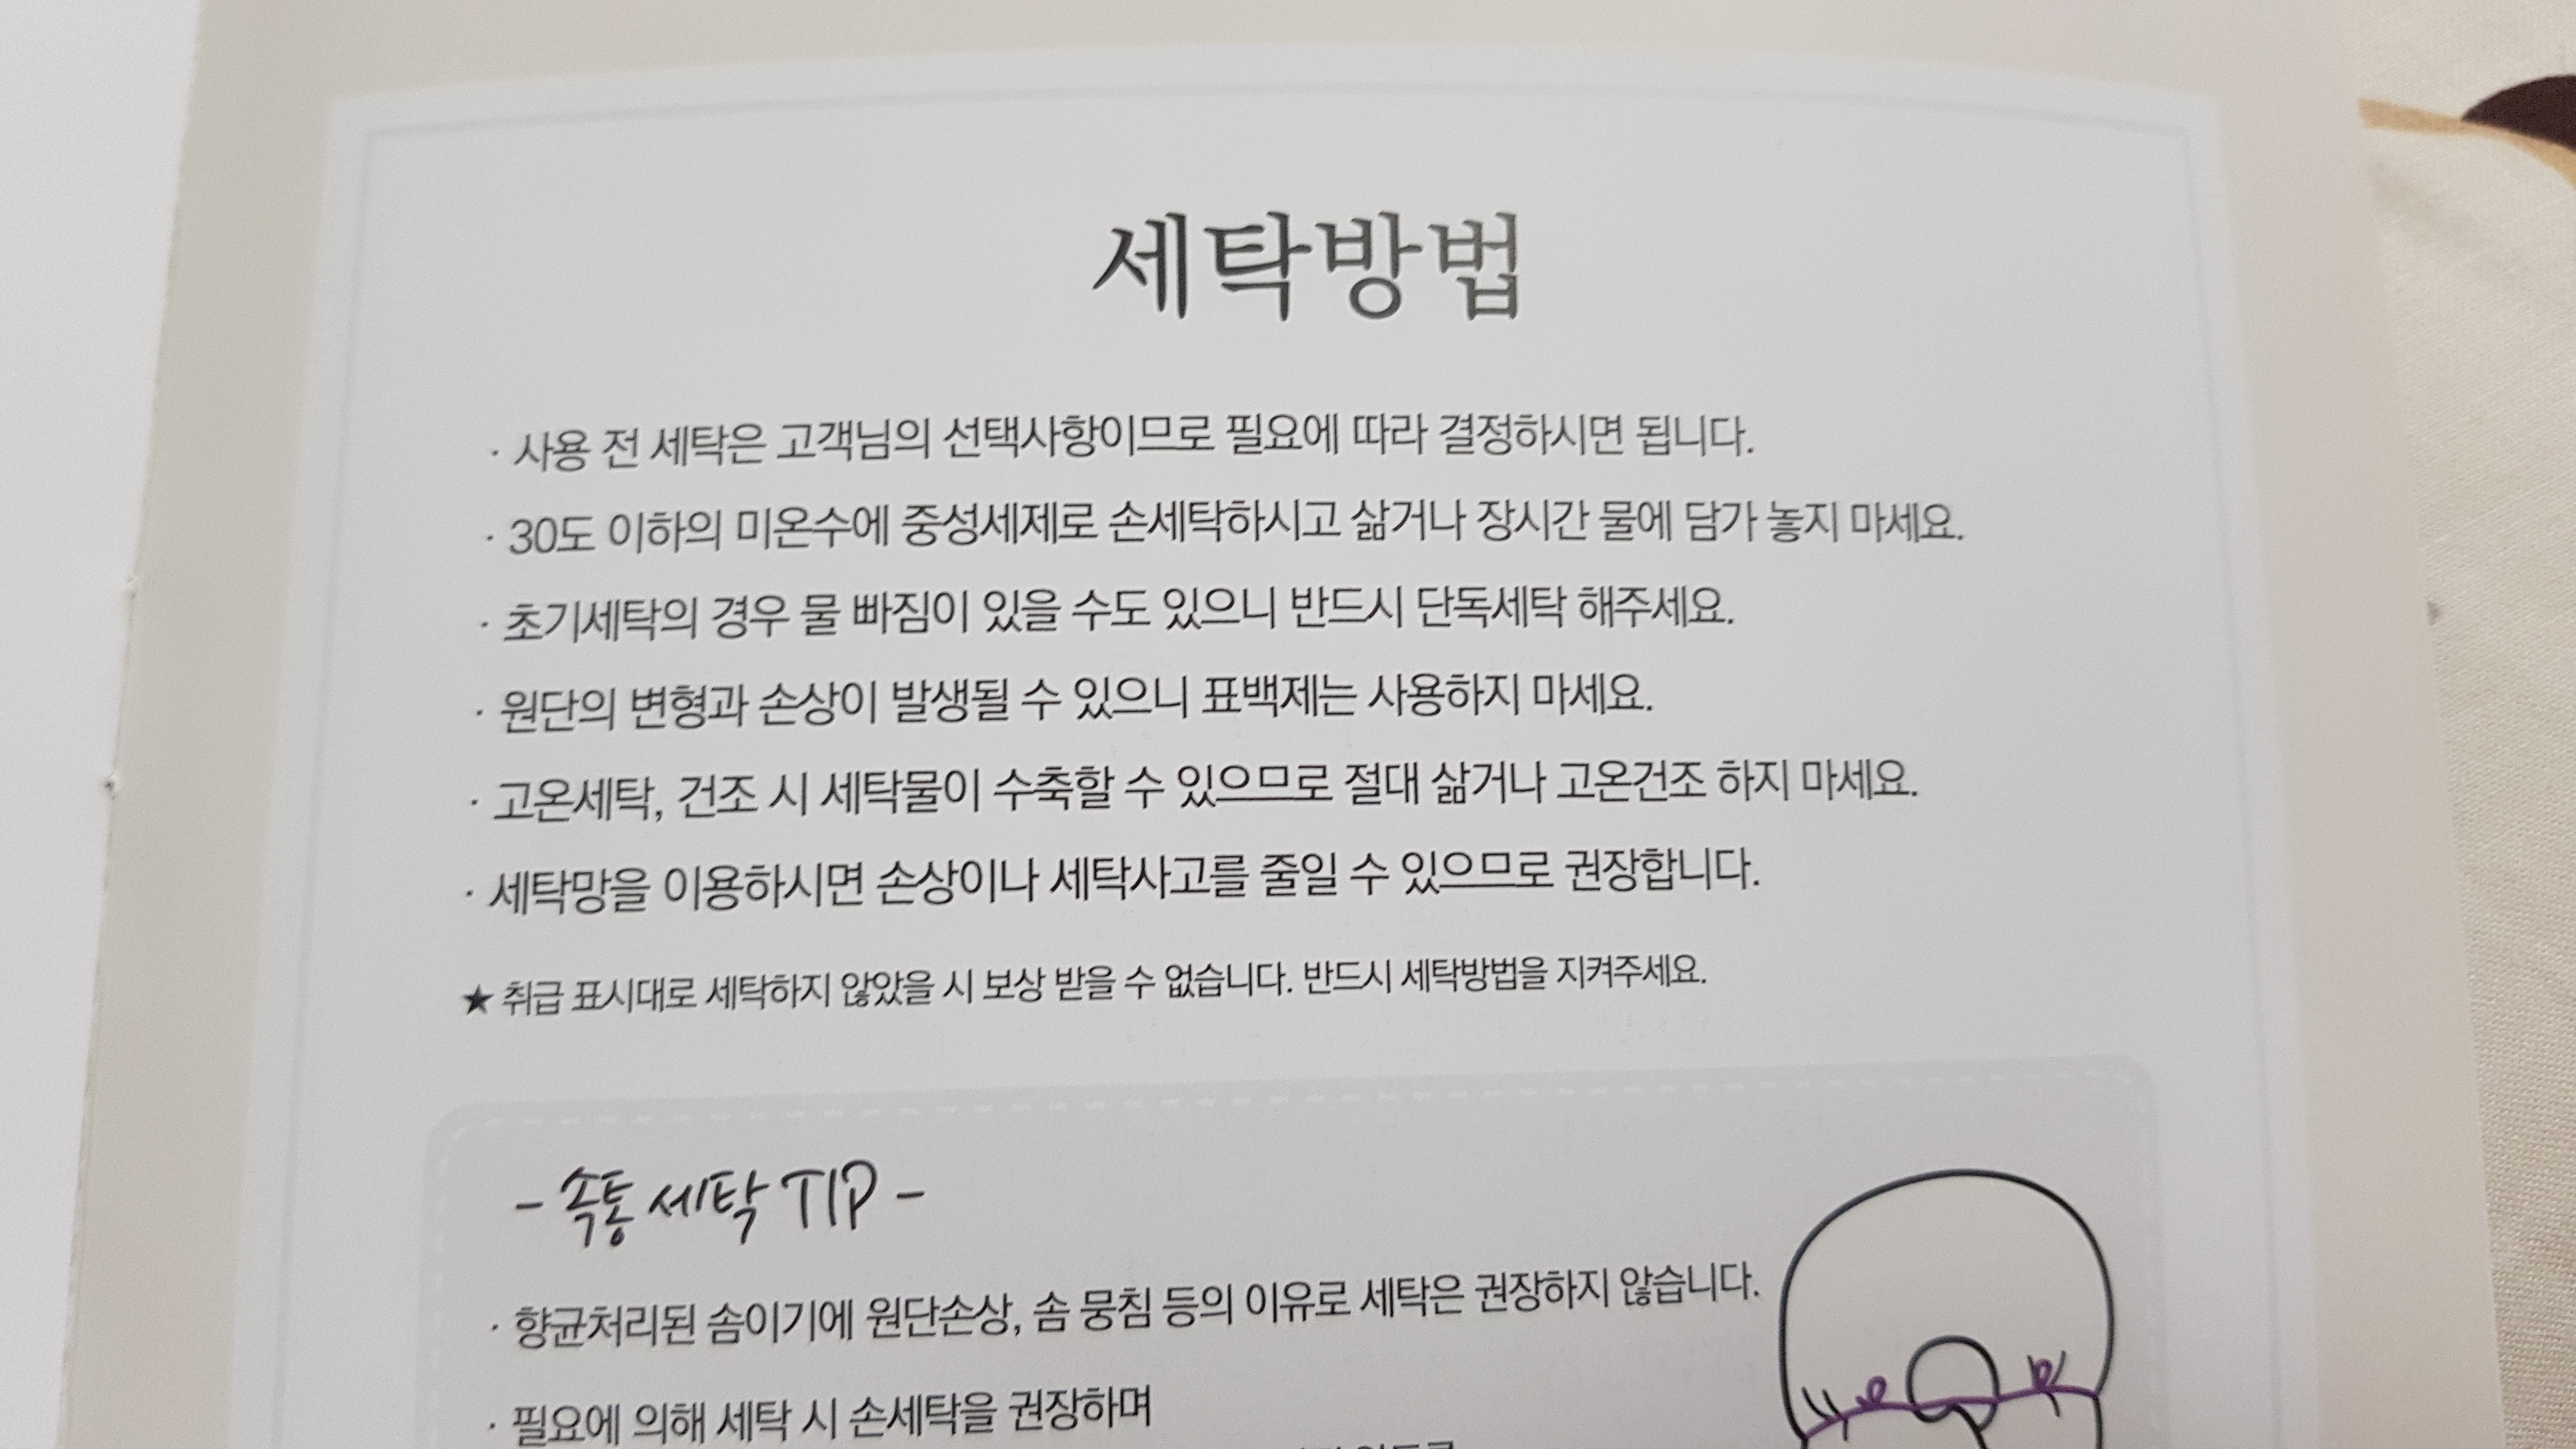 세탁방법
· 사용 전 세탁은 고객님의 선택사항이므로 필요에 따라 결정하시면 됩니다.
· 30도 이하의 미온수에 중성세제로 손세탁하시고 삶거나 장시간 물에 담가 놓지 마세요.
· 초기세탁의 경우 물 빠짐이 있을 수도 있으니 반드시 단독세탁 해주세요.
· 원단의 변형과 손상이 발생될 수 있으니 표백제는 사용하지 마세요.
· 고온세탁, 건조 시 세탁물이 수축할 수 있으므로 절대 삶거나 고온건조 하지 마세요.
· 세탁망을 이용하시면 손상이나 세탁사고를 줄일 수 있으므로 권장합니다.
★ 취급 표시대로 세탁하지 않았을 시 보상 받을 수 없습니다. 반드시 세탁방법을 지켜주세요.
- 속통 세탁 TIP -
· 향균처리된 솜이기에 원단손상, 솜 뭉침 등의 이유로 세탁은 권장하지 않습니다.
· 필요에 의해 세탁 시 손세탁을 권장하며